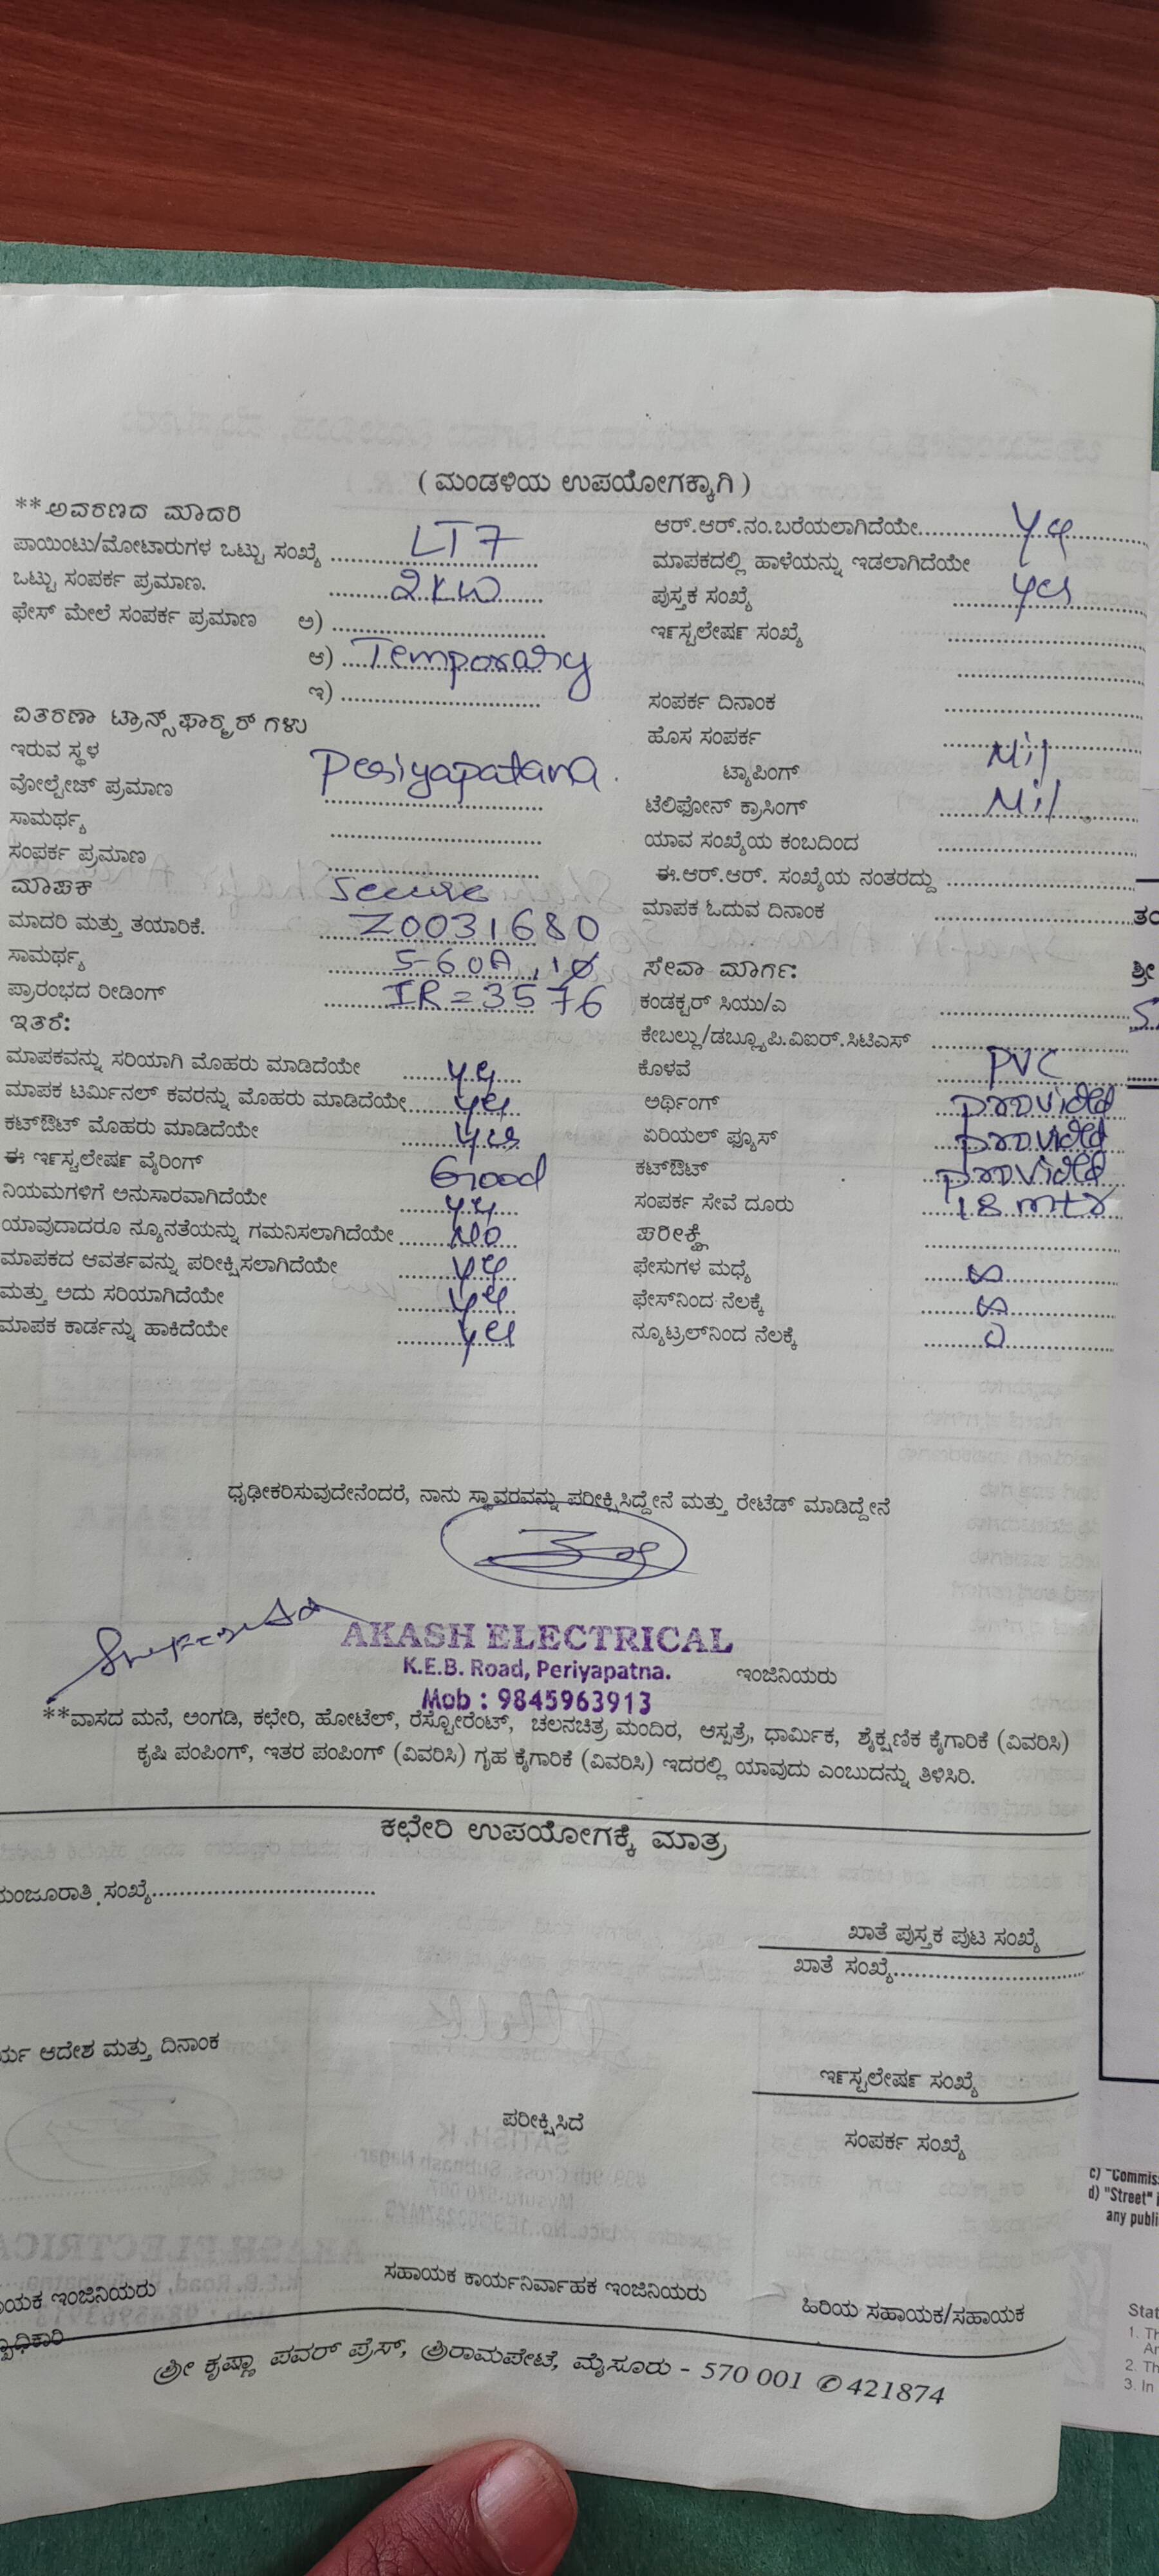 ( ಮಂಡಳಿಯ ಉಪಯೋಗಕ್ಕಾಗಿ )
**ಅವರಣದ ಮಾದರಿ
ಪಾಯಿಂಟು/ಮೋಟಾರುಗಳ ಒಟ್ಟು ಸಂಖ್ಯೆ ........ LT7
ಒಟ್ಟು ಸಂಪರ್ಕ ಪ್ರಮಾಣ. ........ 2KW
ಫೇಸ್ ಮೇಲೆ ಸಂಪರ್ಕ ಪ್ರಮಾಣ ಅ) ........
ಆ) .... Temporary
ಇ) ........
ವಿತರಣಾ ಟ್ರಾನ್ಸ್‌ಫಾರ್ಮರ್ ಗಳು
ಇರುವ ಸ್ಥಳ Periyapatana.
ವೋಲ್ಟೇಜ್ ಪ್ರಮಾಣ ........
ಸಾಮರ್ಥ್ಯ ........
ಸಂಪರ್ಕ ಪ್ರಮಾಣ ........
ಮಾಪಕ Secure
ಮಾದರಿ ಮತ್ತು ತಯಾರಿಕೆ. Z0031680
ಸಾಮರ್ಥ್ಯ 5-60A, 1Ø
ಪ್ರಾರಂಭದ ರೀಡಿಂಗ್ IR = 3576
ಇತರೆ:
ಮಾಪಕವನ್ನು ಸರಿಯಾಗಿ ಮೊಹರು ಮಾಡಿದೆಯೇ ........ yes
ಮಾಪಕ ಟರ್ಮಿನಲ್ ಕವರನ್ನು ಮೊಹರು ಮಾಡಿದೆಯೇ ........ yes
ಕಟ್‌ಔಟ್ ಮೊಹರು ಮಾಡಿದೆಯೇ ........ yes
ಈ ಇನ್‌ಸ್ಟಲೇಷನ್ ವೈರಿಂಗ್ Good
ನಿಯಮಗಳಿಗೆ ಅನುಸಾರವಾಗಿದೆಯೇ ........ yes
ಯಾವುದಾದರೂ ನ್ಯೂನತೆಯನ್ನು ಗಮನಿಸಲಾಗಿದೆಯೇ ........ No
ಮಾಪಕದ ಆವರ್ತವನ್ನು ಪರೀಕ್ಷಿಸಲಾಗಿದೆಯೇ ........ yes
ಮತ್ತು ಅದು ಸರಿಯಾಗಿದೆಯೇ ........ yes
ಮಾಪಕ ಕಾರ್ಡನ್ನು ಹಾಕಿದೆಯೇ ........ yes
ಆರ್.ಆರ್.ನಂ.ಬರೆಯಲಾಗಿದೆಯೇ........ yes
ಮಾಪಕದಲ್ಲಿ ಹಾಳೆಯನ್ನು ಇಡಲಾಗಿದೆಯೇ
ಪುಸ್ತಕ ಸಂಖ್ಯೆ ........ yes
ಇನ್‌ಸ್ಟಲೇಷನ್ ಸಂಖ್ಯೆ ........
ಸಂಪರ್ಕ ದಿನಾಂಕ ........
ಹೊಸ ಸಂಪರ್ಕ ........
ಟ್ಯಾಪಿಂಗ್ Nil
ಟೆಲಿಫೋನ್ ಕ್ರಾಸಿಂಗ್ ........ Nil
ಯಾವ ಸಂಖ್ಯೆಯ ಕಂಬದಿಂದ ........
ಈ.ಆರ್.ಆರ್. ಸಂಖ್ಯೆಯ ನಂತರದ್ದು ........
ಮಾಪಕ ಓದುವ ದಿನಾಂಕ ........
ಸೇವಾ ಮಾರ್ಗ:
ಕಂಡಕ್ಟರ್ ಸಿಯು/ಎ ........
ಕೇಬಲ್ಲು/ಡಬ್ಲ್ಯೂಪಿ.ವಿಐರ್.ಸಿಟಿಎಸ್ ........
ಕೊಳವೆ PVC
ಅರ್ಥಿಂಗ್ provided
ಏರಿಯಲ್ ಫ್ಯೂಸ್ provided
ಕಟ್‌ಔಟ್ provided
ಸಂಪರ್ಕ ಸೇವೆ ದೂರು 18 mtr
ಪರೀಕ್ಷೆ ........
ಫೇಸುಗಳ ಮಧ್ಯೆ ........ ∞
ಫೇಸ್‌ನಿಂದ ನೆಲಕ್ಕೆ ........ ∞
ನ್ಯೂಟ್ರಲ್‌ನಿಂದ ನೆಲಕ್ಕೆ ........ 0
ಧೃಢೀಕರಿಸುವುದೇನೆಂದರೆ, ನಾನು ಸ್ಥಾವರವನ್ನು ಪರೀಕ್ಷಿಸಿದ್ದೇನೆ ಮತ್ತು ರೇಟೆಡ್ ಮಾಡಿದ್ದೇನೆ
AKASH ELECTRICAL
K.E.B. Road, Periyapatna.
Mob : 9845963913
ಇಂಜಿನಿಯರು
**ವಾಸದ ಮನೆ, ಅಂಗಡಿ, ಕಛೇರಿ, ಹೋಟೆಲ್, ರೆಸ್ಟೋರೆಂಟ್, ಚಲನಚಿತ್ರ ಮಂದಿರ, ಆಸ್ಪತ್ರೆ, ಧಾರ್ಮಿಕ, ಶೈಕ್ಷಣಿಕ ಕೈಗಾರಿಕೆ (ವಿವರಿಸಿ)
ಕೃಷಿ ಪಂಪಿಂಗ್, ಇತರ ಪಂಪಿಂಗ್ (ವಿವರಿಸಿ) ಗೃಹ ಕೈಗಾರಿಕೆ (ವಿವರಿಸಿ) ಇದರಲ್ಲಿ ಯಾವುದು ಎಂಬುದನ್ನು ತಿಳಿಸಿರಿ.
ಕಛೇರಿ ಉಪಯೋಗಕ್ಕೆ ಮಾತ್ರ
ಮಂಜೂರಾತಿ ಸಂಖ್ಯೆ........
ಖಾತೆ ಪುಸ್ತಕ ಪುಟ ಸಂಖ್ಯೆ
ಖಾತೆ ಸಂಖ್ಯೆ........
ರ್ಯ ಆದೇಶ ಮತ್ತು ದಿನಾಂಕ
ಇನ್‌ಸ್ಟಲೇಷನ್ ಸಂಖ್ಯೆ
ಪರೀಕ್ಷಿಸಿದೆ
ಸಂಪರ್ಕ ಸಂಖ್ಯೆ
ಾಯಕ ಇಂಜಿನಿಯರು
ಸಹಾಯಕ ಕಾರ್ಯನಿರ್ವಾಹಕ ಇಂಜಿನಿಯರು
ಹಿರಿಯ ಸಹಾಯಕ/ಸಹಾಯಕ
ಶ್ರೀ ಕೃಷ್ಣಾ ಪವರ್ ಪ್ರೆಸ್, ಶ್ರೀರಾಮಪೇಟೆ, ಮೈಸೂರು - 570 001 ✆ 421874
c) "Commis
d) "Street" i
any publi
Stat
1. Th
Ar
2. Th
3. In